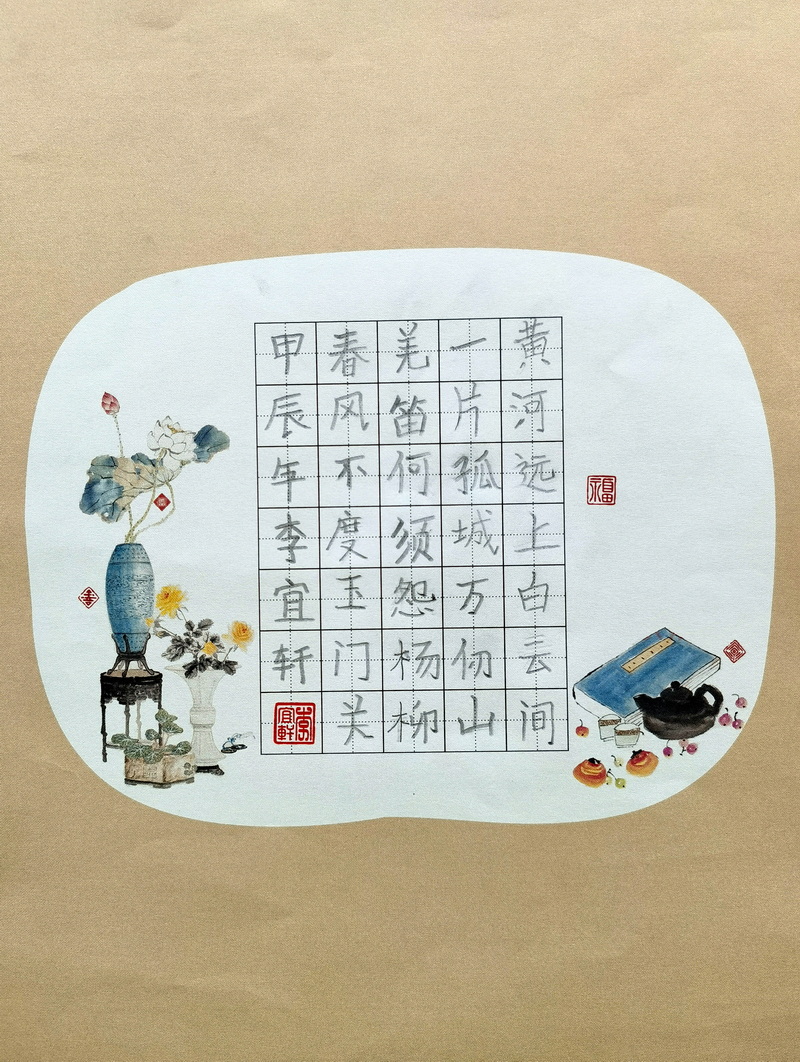 黄河远上白云间
一片孤城万仞山
羌笛何须怨杨柳
春风不度玉门关
甲辰年李宜轩
李宜軒
永福